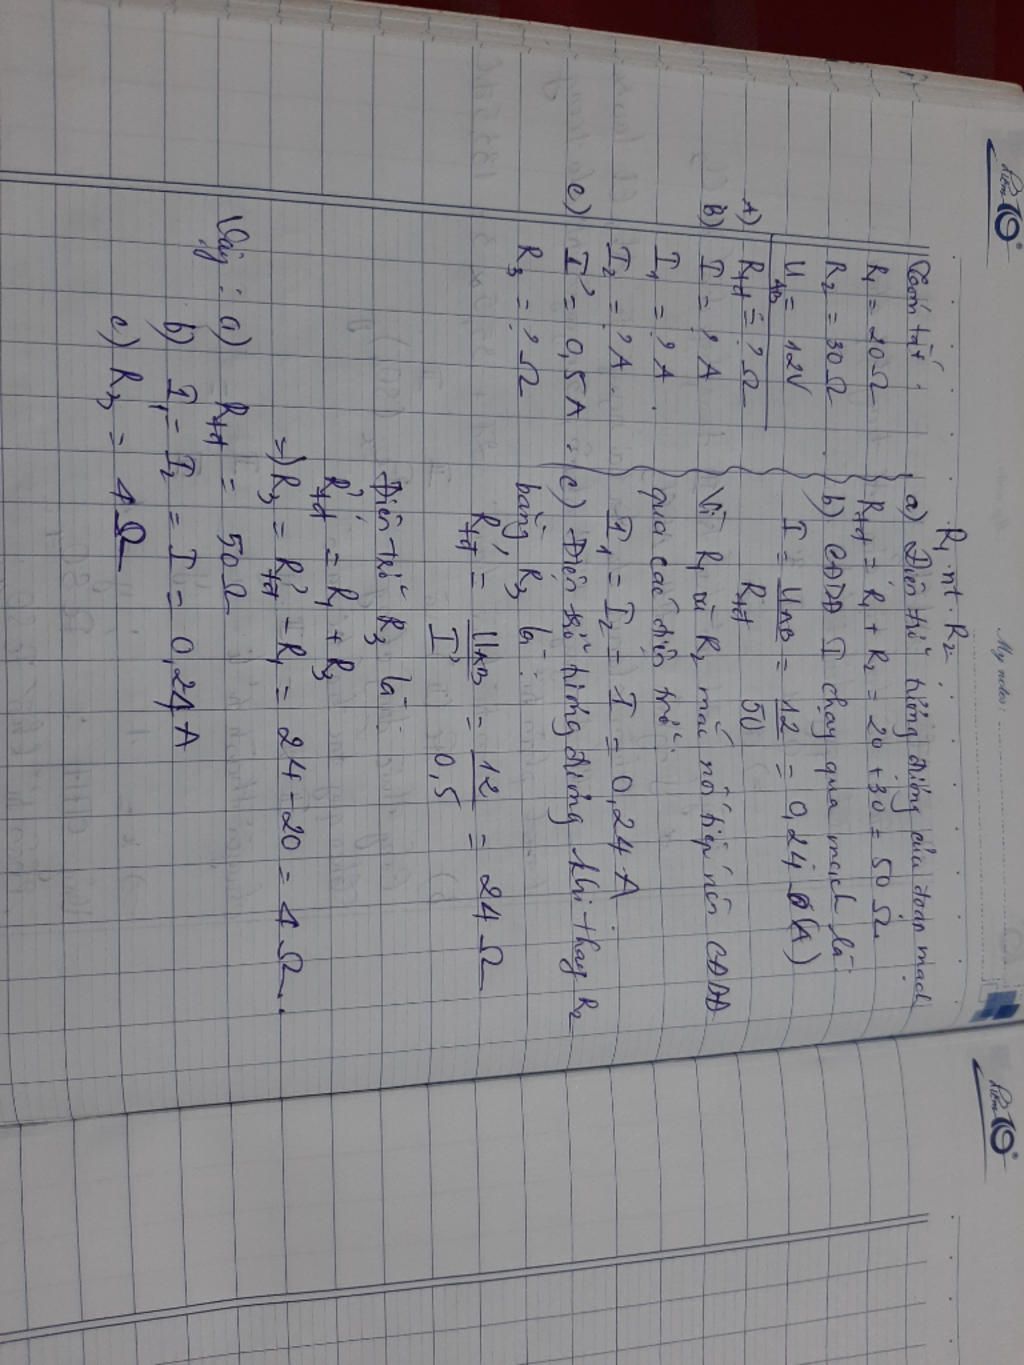 Điểm 10
My notes:
R₁ nt R₂
Tóm tắt.
R₁ = 20Ω
R₂ = 30Ω
U_AB = 12V
A) R_tđ = ? Ω
B) I = ? A
I₁ = ? A.
I₂ = ? A.
c) I' = 0,5A.
R₃ = ? Ω
a) Điện trở tương đương của đoạn mạch
R_tđ = R₁ + R₂ = 20 + 30 = 50 Ω.
b) CĐDĐ I chạy qua mạch là:
I = U_AB / R_tđ = 12 / 50 = 0,24 (A)
Vì R₁ và R₂ mắc nối tiếp nên CĐDĐ
qua các điện trở:
I₁ = I₂ = I = 0,24A
c) Điện trở tương đương khi thay R₂
bằng R₃ là:
R'_tđ = U_AB / I' = 12 / 0,5 = 24 Ω
Điện trở R₃ là:
R'_tđ = R₁ + R₃
=) R₃ = R'_tđ - R₁ = 24 - 20 = 4 Ω.
Vậy: a) R_tđ = 50Ω
b) I₁ = I₂ = I = 0,24A
c) R₃ = 4Ω
Điểm 10